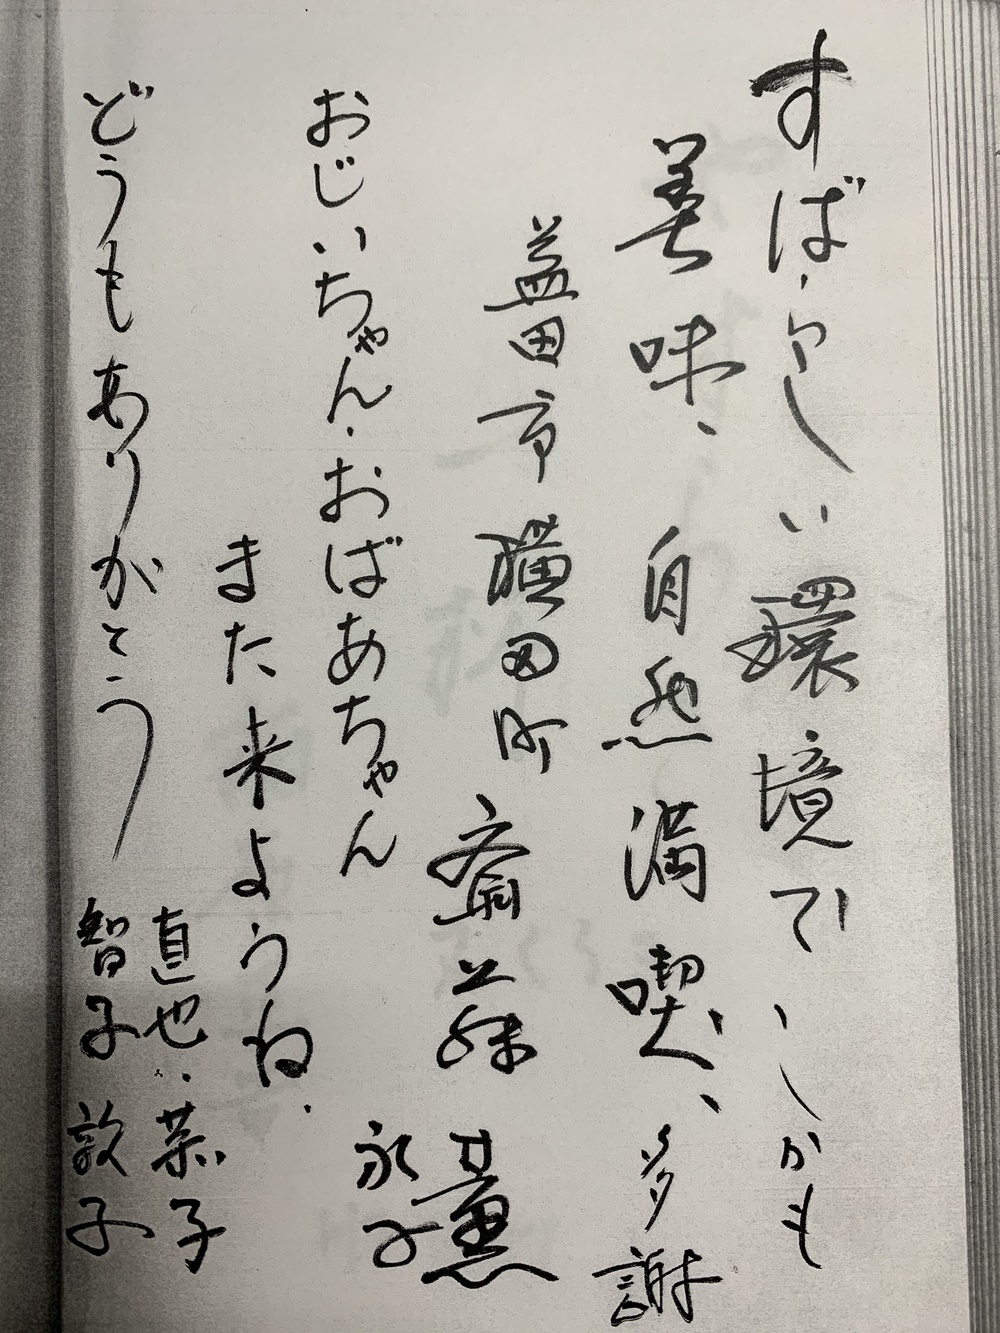 すばらしい環境でしかも
美味、自然満喫、多謝
益田市横田町 齋藤 薫
永子
おじいちゃん・おばあちゃん
また来ようね.
どうもありがとう
直也・菜子
智子 敦子